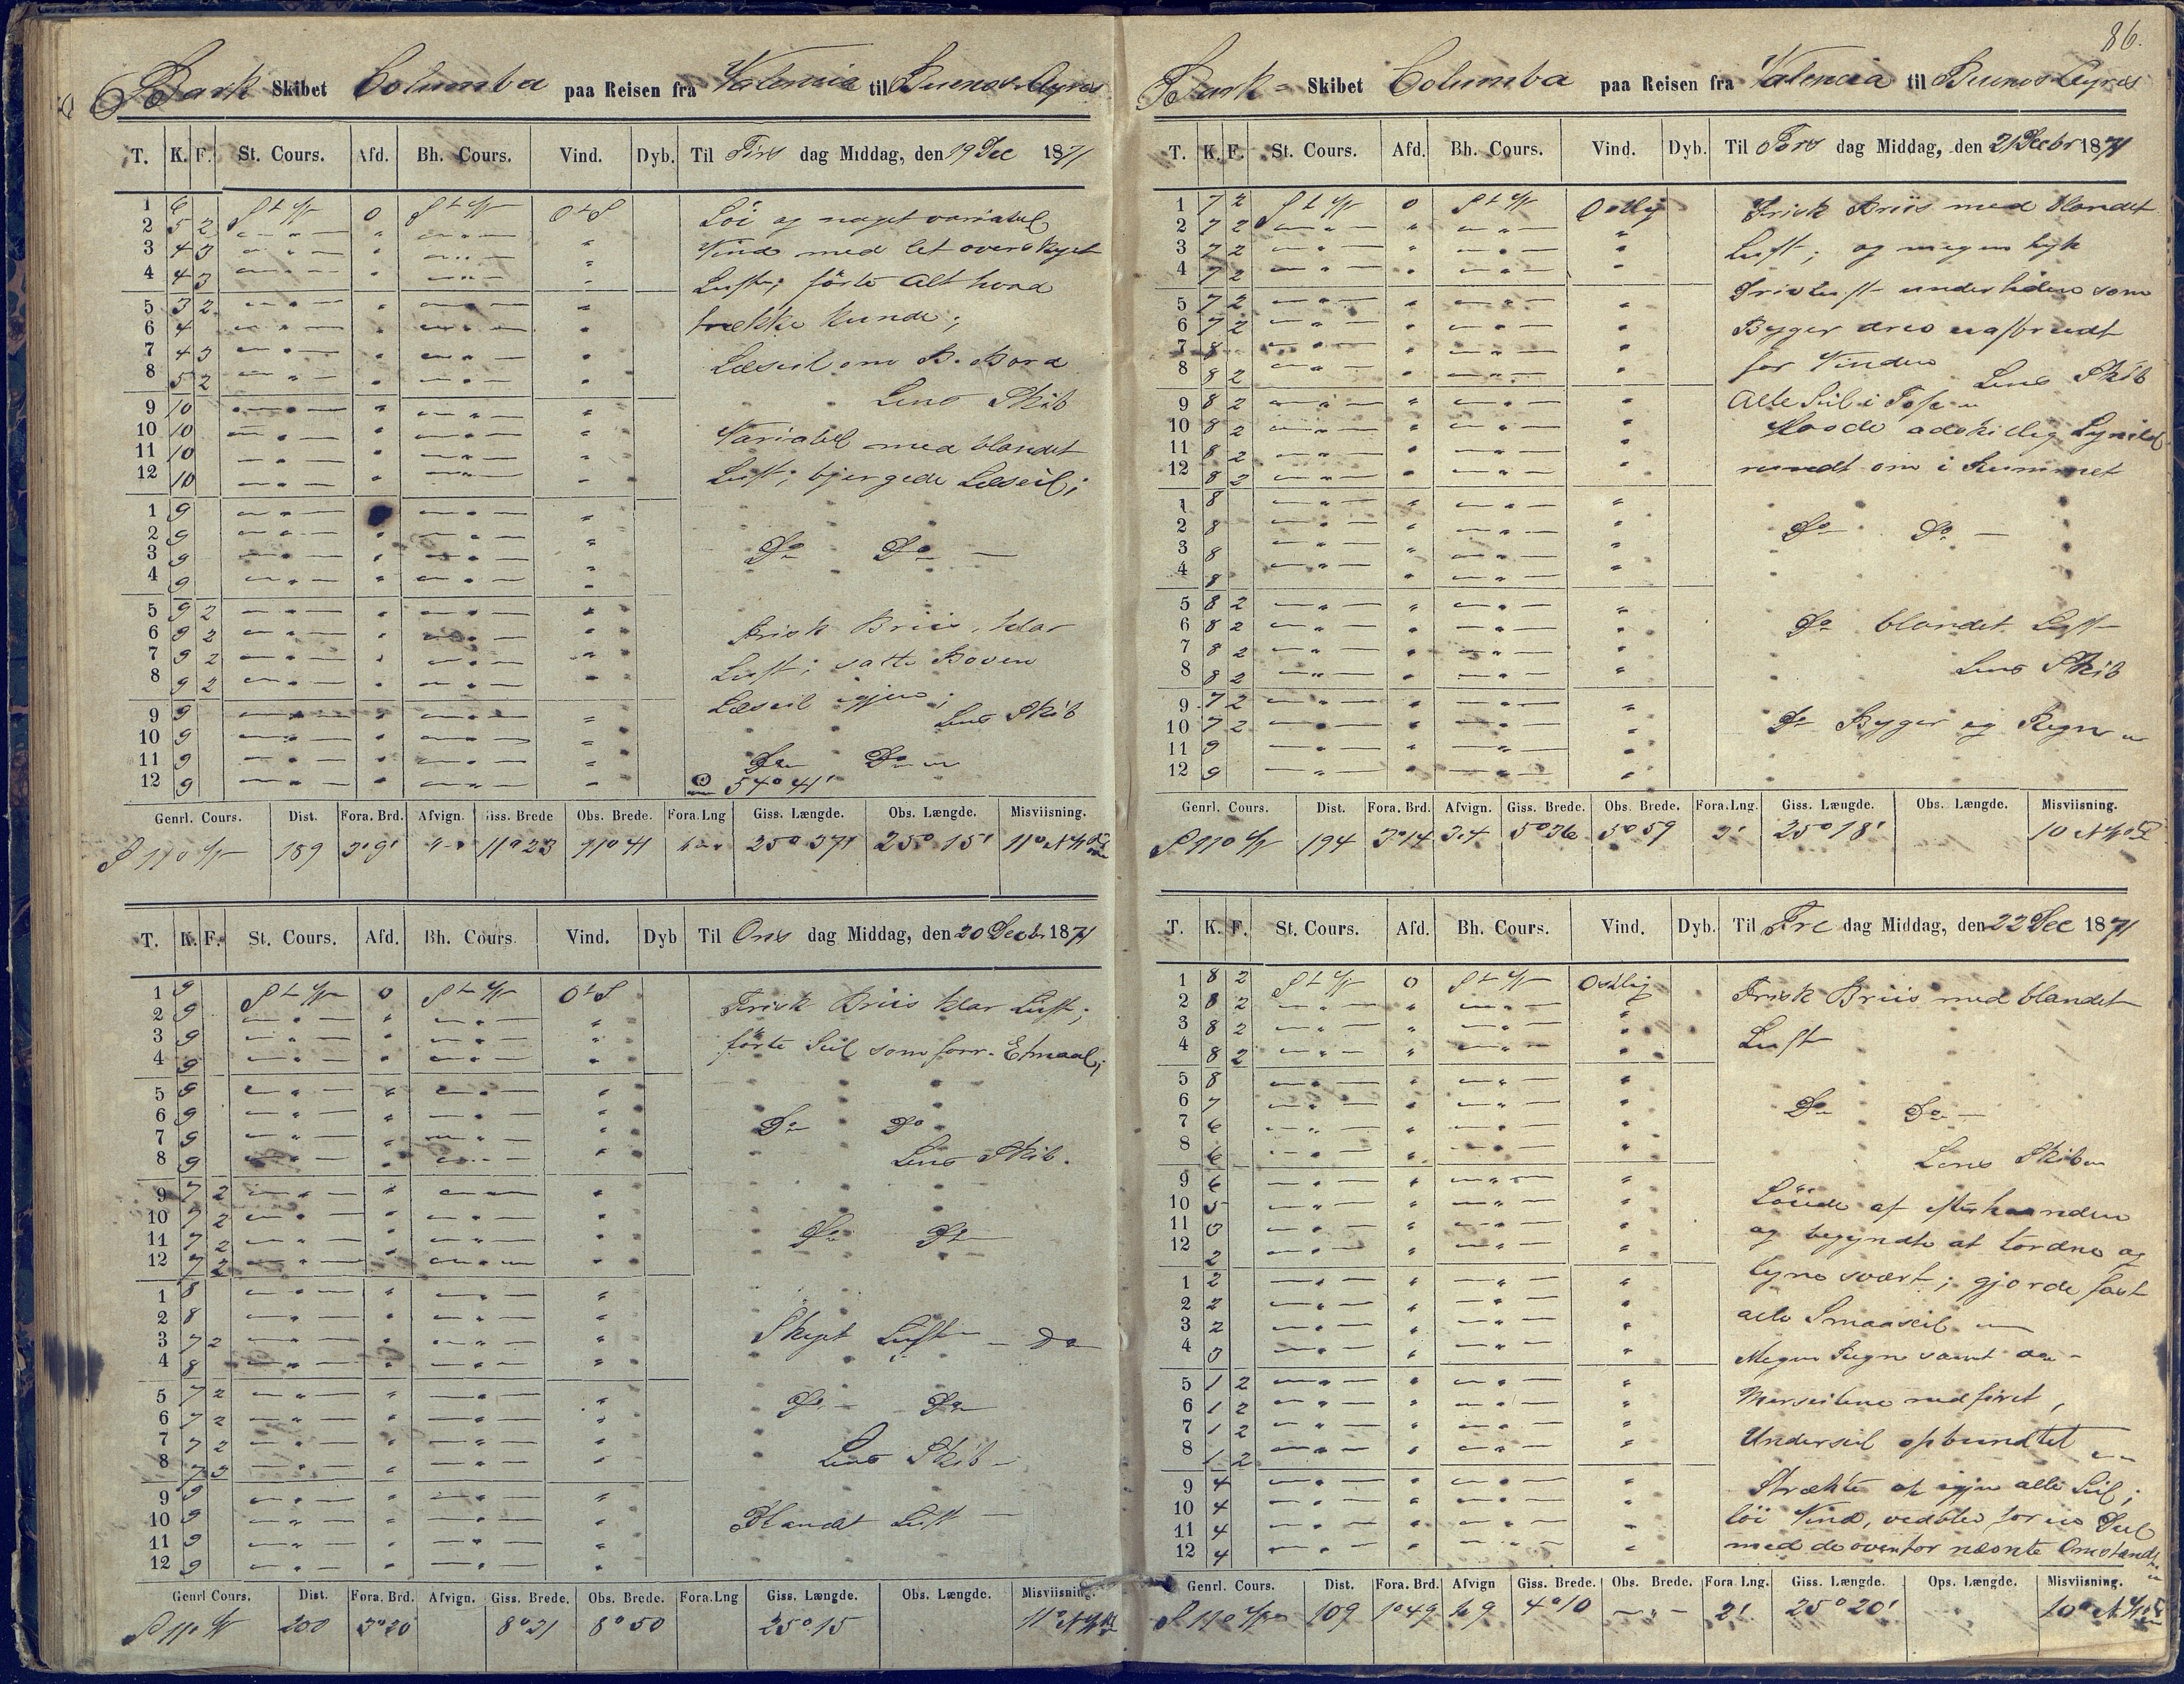 Bark Skibet Columba paa Reisen fra Valencia til Buenos Ayres
T. K. F. St. Cours. Afd. Bh. Cours. Vind. Dyb. Til Tirs dag Middag, den 19 Dec 1871
1 6 S t W 0 S t W O t S
2 5 2
3 4 3
4 4 3
5 3 2
6 4
7 4 3
8 5 2
9 10
10 10
11 10
12 10
1 9
2 9
3 9
4 9
5 9 2
6 9 2
7 9 2
8 9 2
9 9
10 9
11 9
12 9
Löi og noget variabel
Vind med let overskyet
Luft; förte Alt hvad
trække kunde;
Læseil om B. Bord
Lens Skib
Variabel med blandet
Luft; bjergede Læseil;
Do Do —
Frisk Briis, klar
Luft; satte Boven
Læseil igjen;
Lens Skib
Do Do
54° 41'
Genrl. Cours. Dist. Fora. Brd. Afvign. Giss. Brede Obs. Brede. Fora. Lng Giss. Længde. Obs. Længde. Misviisning.
S 11° W 189 3° 9' 11° 23 11° 41 25° 37' 25° 15' 11° NW
T. K. F. St. Cours. Afd. Bh. Cours. Vind. Dyb Til Ons dag Middag, den 20 Decbr 1871
1 9 S t W 0 S t W O t S
2 9
3 9
4 9
5 9
6 9
7 9
8 9
9 7 2
10 7 2
11 7 2
12 7 2
1 8
2 8
3 7 2
4 8
5 7 2
6 7 2
7 7 2
8 7 3
9 9
10 9
11 9
12 9
Frisk Briis klar Luft;
förte Seil som forr. Etmaal;
Do Do
Lens Skib.
Do Do
Skyet Luft — Do
Do Do
Lens Skib —
Blandet Luft —
Genrl Cours. Dist. Fora. Brd. Afvign. Giss. Brede. Obs. Brede. Fora. Lng Giss. Længde. Obs. Længde. Misviisning.
S 11° W 200 3° 20 8° 21 8° 50 25° 15 11° NW
86.
Bark- Skibet Columba paa Reisen fra Valencia til Buenos Ayres
T. K. F. St. Cours. Afd. Bh. Cours. Vind. Dyb. Til Tors dag Middag, den 21 Decbr 1871
1 7 2 S t W 0 S t W Ostlig
2 7 2
3 7 2
4 7 2
5 7 2
6 7 2
7 8
8 8 2
9 8 2
10 8 2
11 8 2
12 8 2
1 8
2 8
3 8
4 8
5 8 2
6 8 2
7 8 2
8 8 2
9 7 2
10 7 2
11 9
12 9
Frisk Briis med blandet
Luft; og megen tyk
Drivluft undertiden som
Byger drev uafbrudt
for Vinden
Lens Skib
Alle Seil i Top
Havde adskillig Lynild
rundt om i Rummet
Do Do —
Do blandet Luft
Lens Skib
Do Byger og Regn
Genrl. Cours. Dist. Fora. Brd. Afvign. Giss. Brede. Obs. Brede. Fora. Lng. Giss. Længde. Obs. Længde. Misviisning.
S 11° W 194 3° 14 3.4 5° 36 5° 59 3' 25° 18' 10 NW
T. K. F. St. Cours. Afd. Bh. Cours. Vind. Dyb. Til Fre dag Middag, den 22 Dec 1871
1 8 2 S t W 0 S t W Ostlig
2 8 2
3 8 2
4 8 2
5 8
6 7
7 6
8 6
9 6
10 5
11 3
12 2
1 2
2 2
3 2
4 3
5 1 2
6 1 2
7 1 2
8 1 2
9 4
10 4
11 4
12 4
Frisk Briis med blandet
Luft
Do Do —
Lens Skib
Löiede af efterhaanden
og begyndte at tordne og
lyne svært; gjorde fast
alle Smaaseil —
Megen Regn samt do -
Merseilene nedfiret,
Underseil opbundtet
Strækte af igjen alle Seil;
löi Vind, vedblev for es Seil
med de ovenfor nævnte Omstænd
Genrl. Cours. Dist. Fora. Brd. Afvign Giss. Brede. Obs. Brede. Fora Lng. Giss. Længde. Ops. Længde. Misviisning.
S 11° W 109 1° 49 4° 10 — " — 2' 25° 20' 10° NW